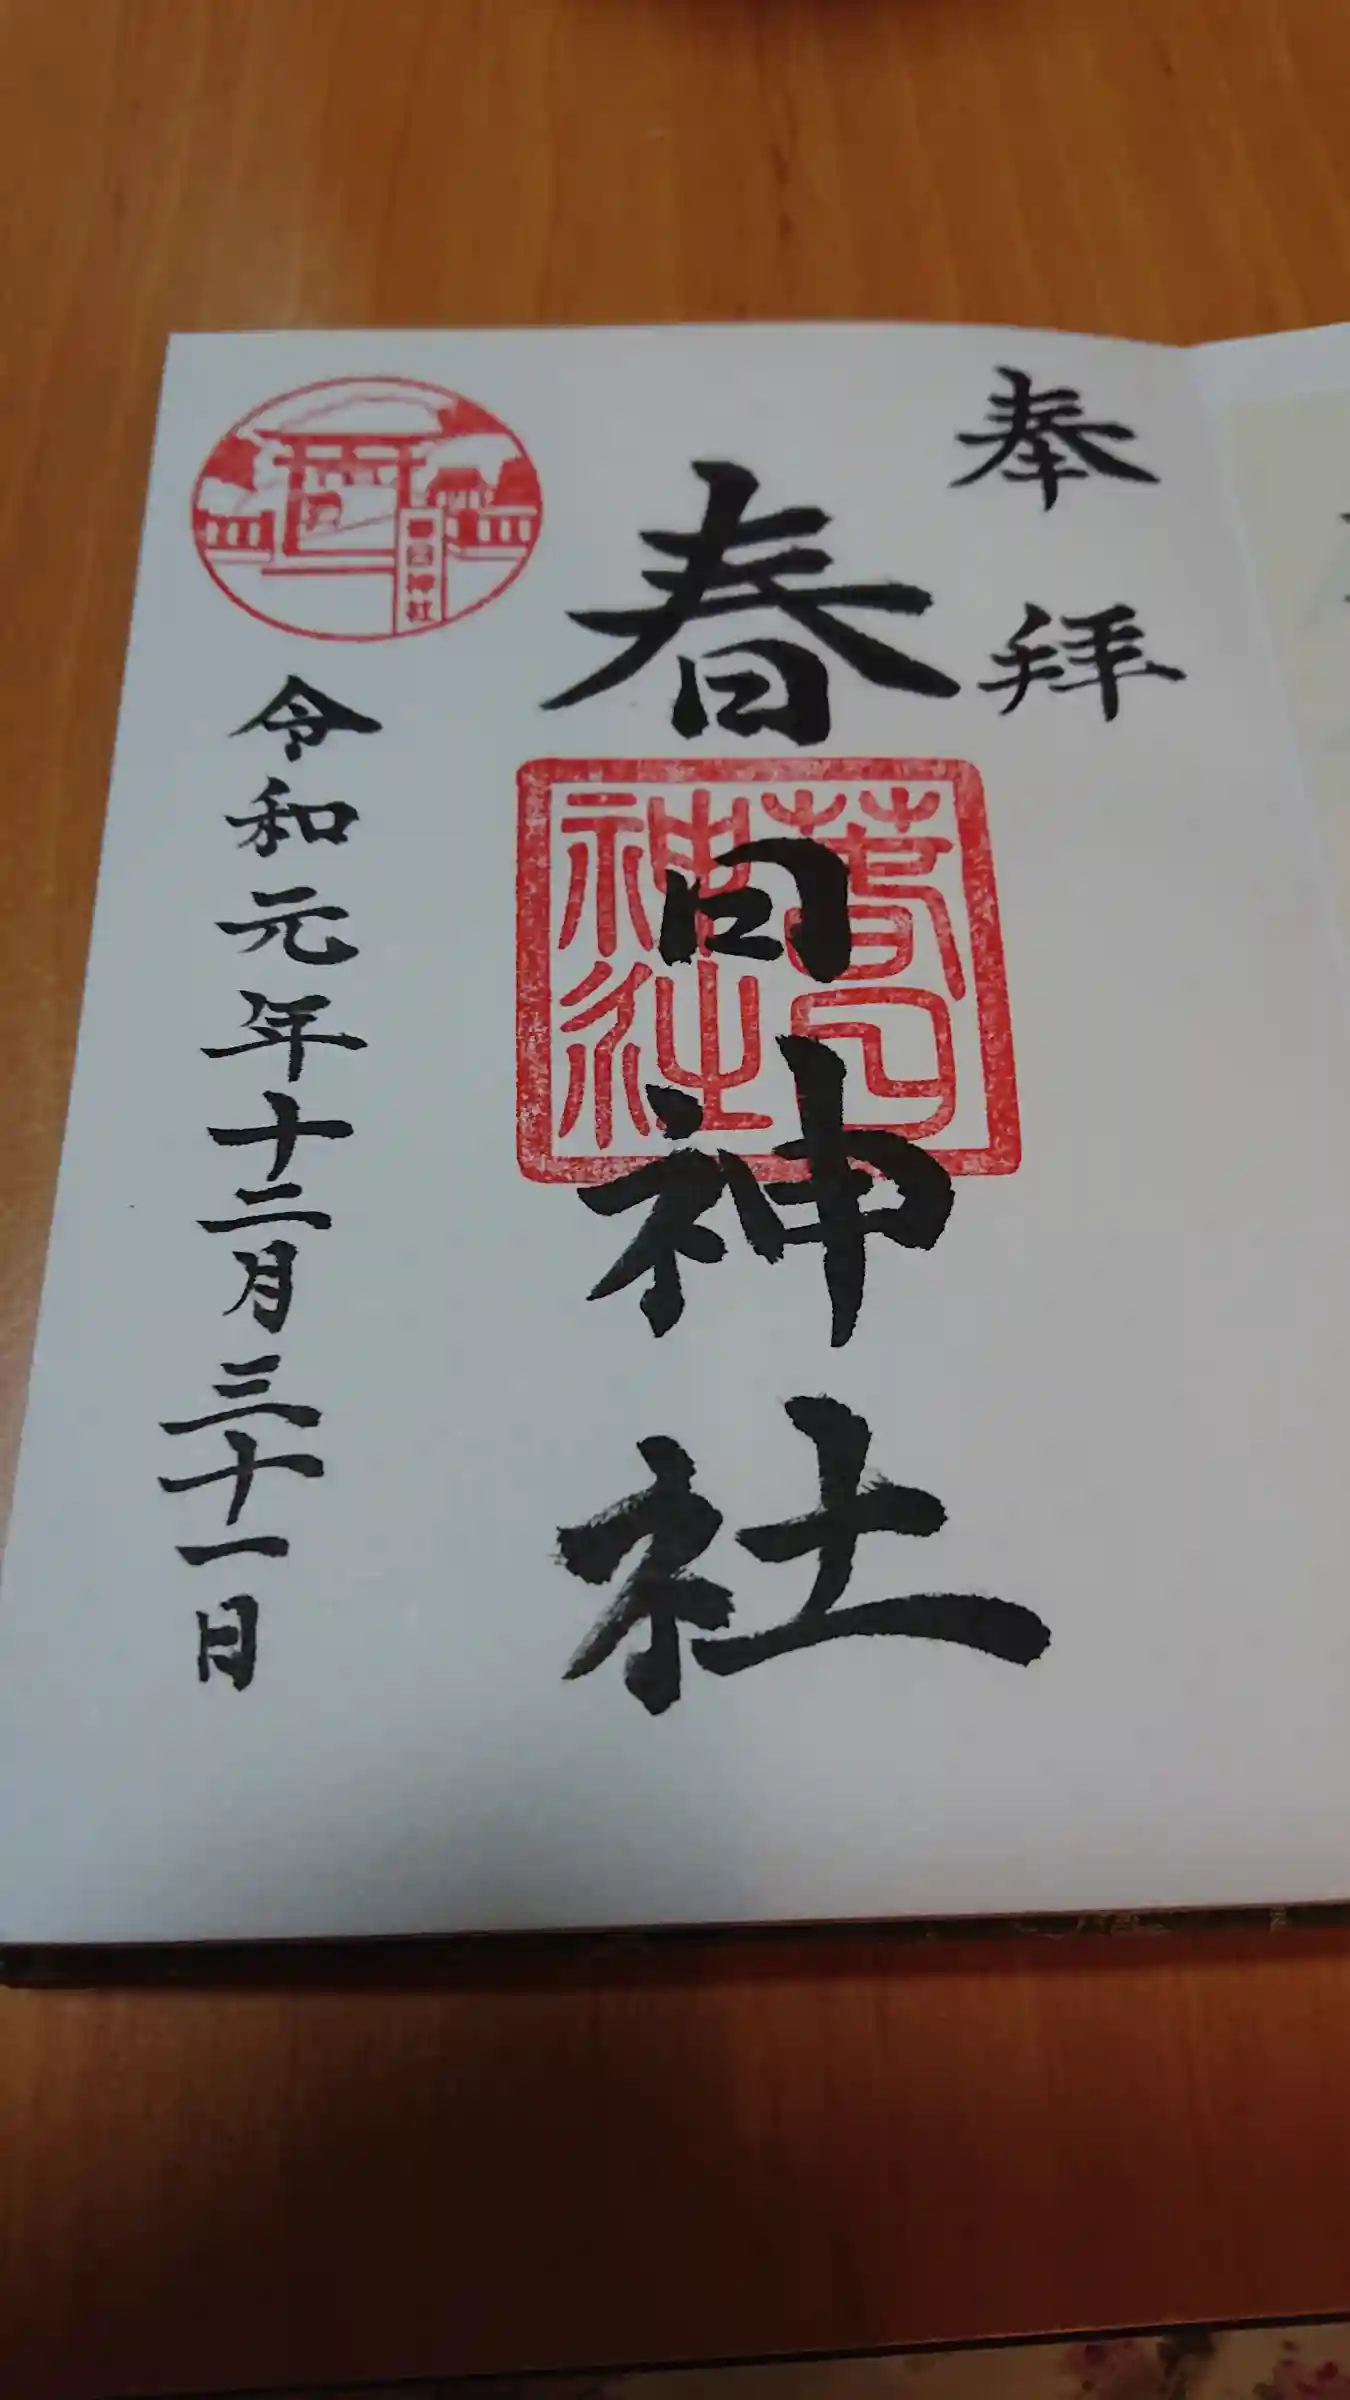 奉拝
春日神社
春日神社
春日神社
令和元年十二月三十一日